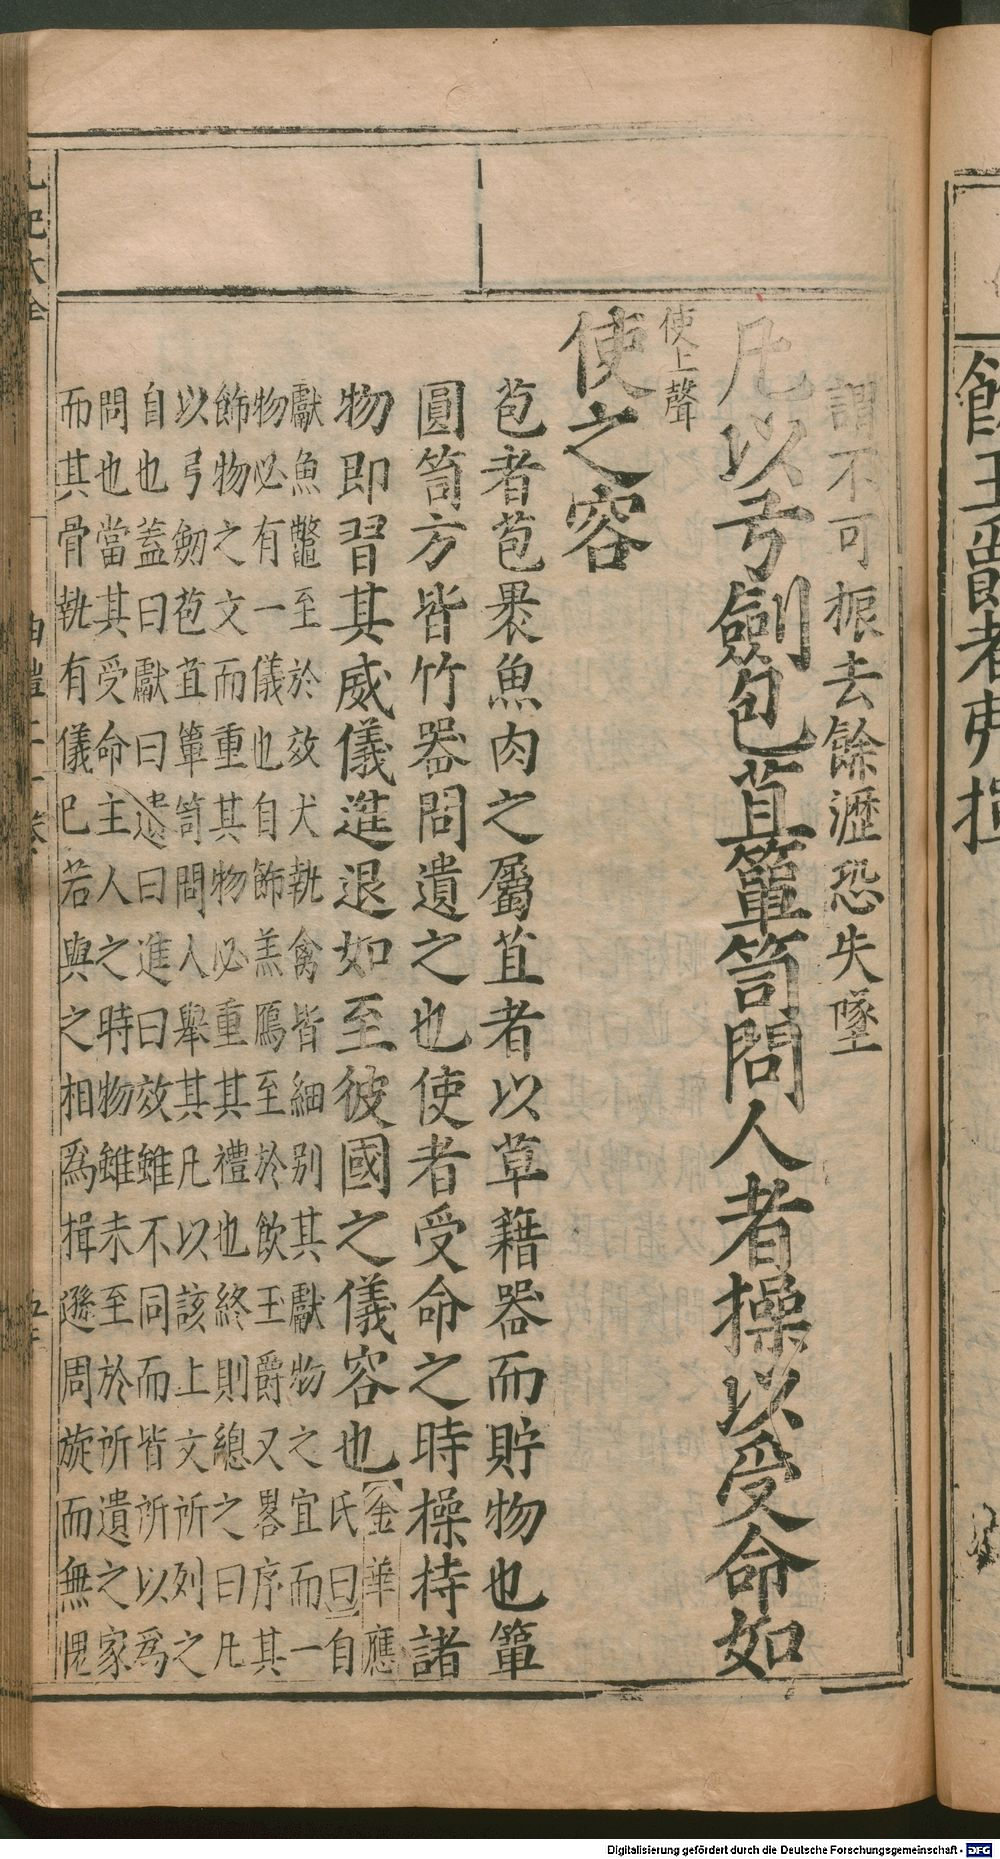 飾玉爵者弗揮
謂不可振去餘瀝恐失墜
凡以弓劍苞苴簞笥問人者操以受命如
使上聲
使之容
苞者苞裹魚肉之屬苴者以草藉器而貯物也簞
圓笥方皆竹器問遺之也使者受命之時操持諸
物即習其威儀進退如至彼國之儀容也
金華應
氏曰自
獻魚鼈至於效犬執禽皆細別其獻物之宜而一
物必有一儀也自飾羔鴈至於飲玉爵又畧序其
飾物之文而重其物必重其禮也終則總之曰凡
以弓劒苞苴簞笥問人舉其凡以該上文所列之
自也蓋曰獻曰遺曰進曰效雖不同而皆所以爲
問也當其受命主人之時物雖未至於所遺之家
而其骨執有儀已若與之相爲揖遜周旋而無愧
禮記大全
曲禮上二卷
Digitalisierung gefördert durch die Deutsche Forschungsgemeinschaft - DFG